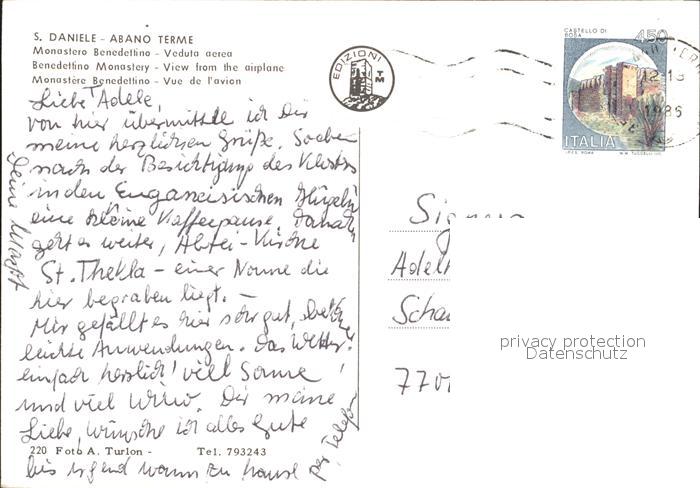 S. DANIELE - ABANO TERME
Monastero Benedettino - Veduta aerea
Benedettino Monastery - View from the airplane
Monastère Benedettino - Vue de l'avion
EDIZIONI
TM
CASTELLO DI
BOSA
450
12-13
1986
ITALIA
Liebe Adele,
von hier übermittle ich Dir
meine herzlichen Grüße. Soeben
nach der Besichtigung des Klosters
in den Euganeisischen Hügeln
eine kleine Kaffeepause, danach
geht es weiter, Abtei-Kirche
St. Thekla - einer Nonne die
hier begraben liegt. -
Mir gefällt es hier sehr gut,
leichte Anwendungen. Das Wetter
einfach herrlich! viel Sonne
und viel Dir meine
Liebe, wünsche ich alles Gute
bis irgend wann zu hause
per Telefon
Deine
Adel
770
privacy protection
Datenschutz
220 Foto A. Turlon - Tel. 793243